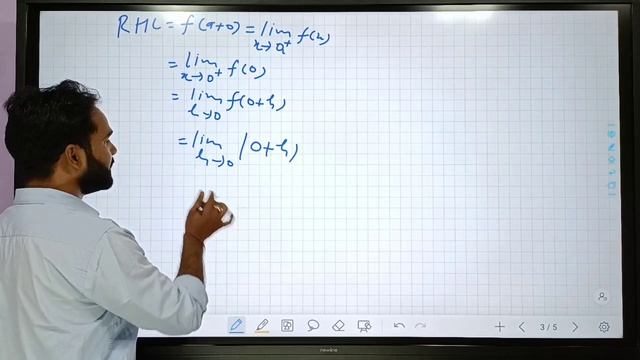 RHL = f(a+0) = lim x→a⁺ f(x)
= lim x→0⁺ f(0)
= lim h→0 f(0+h)
= lim h→0 |0+h)
3/5
newline